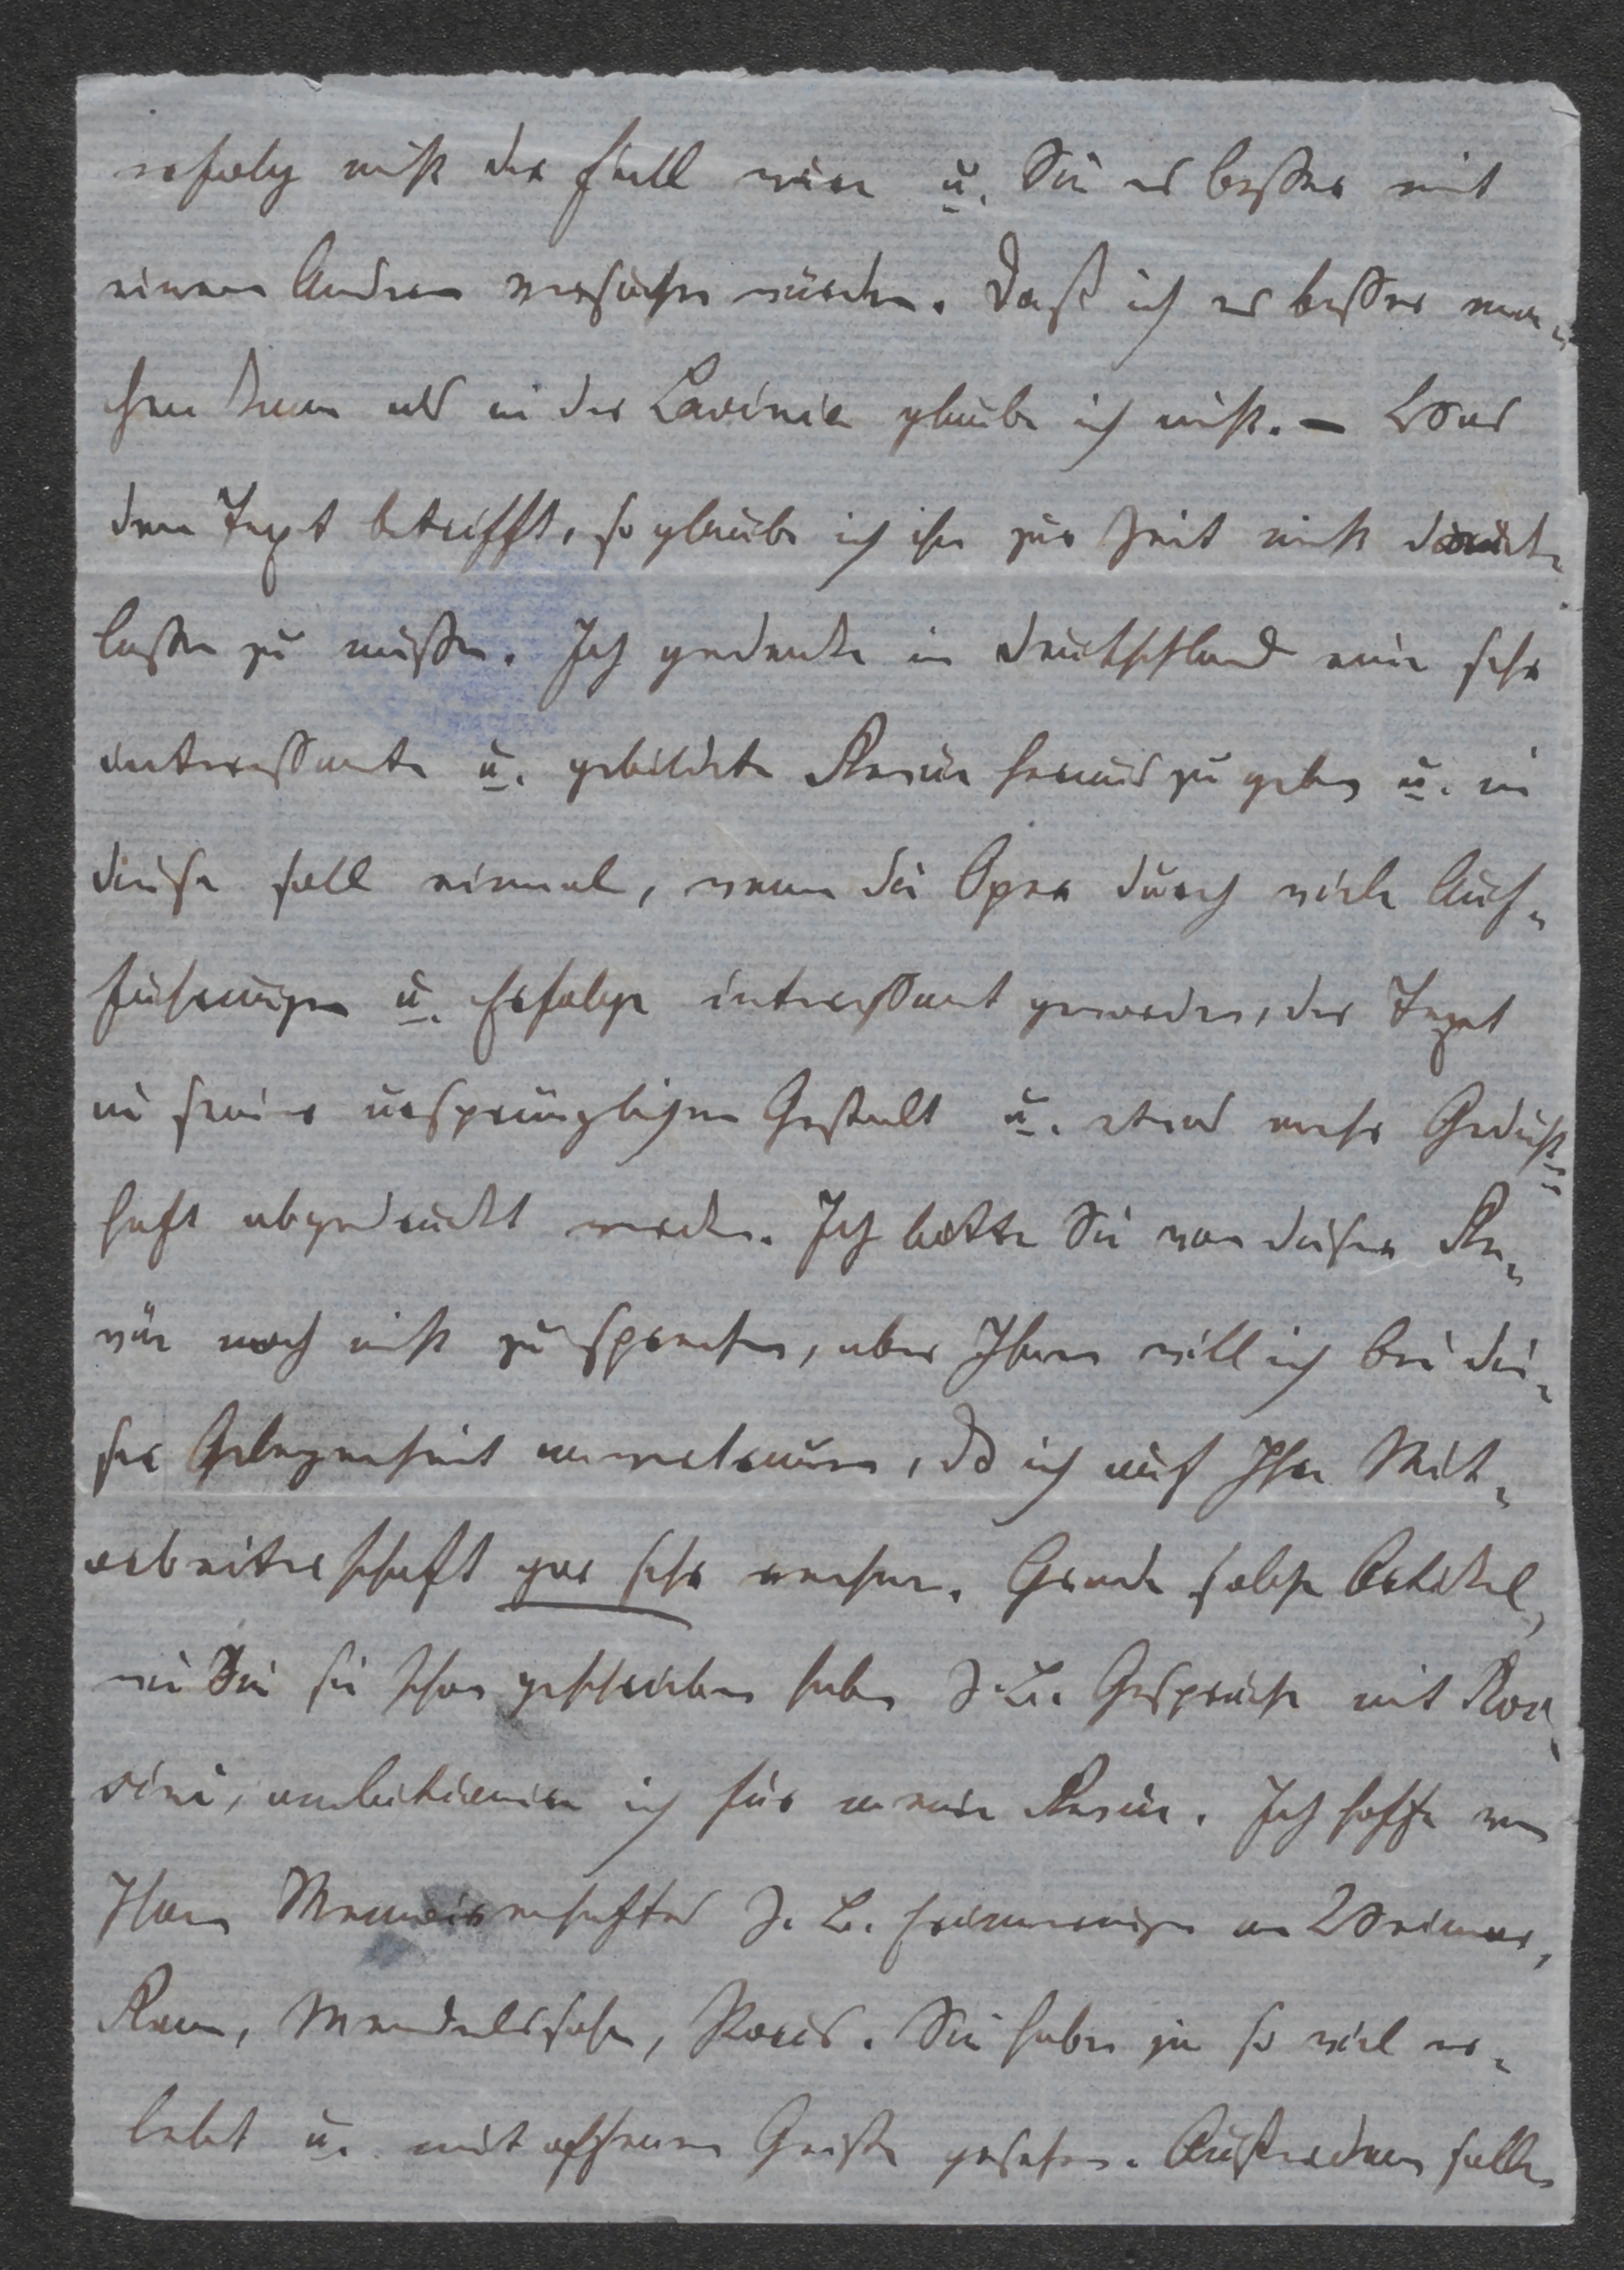 erfolg nicht der Fall wäre u. Sie es besser mit
einem Andren versuchen würden. Daß ich es besser ma-
chen kann als in der Lavinia glaube ich nicht. – Was
den Text betrifft, so glaube ich ihn zur Zeit nicht drucken
lassen zu müssen. Ich gedenke in Deutschland eine sehr
interessante u. gebildete Revüe herauszugeben u. in
dieser soll einmal, wenn die Oper durch viele Auf-
führungen u. Erfolge interessant geworden, der Text
in seiner ursprünglichen Gestalt u. etwas mehr Gedicht-
haft abgedruckt werden. Ich bitte Sie von dieser Re-
vüe noch nicht zu sprechen, aber Ihnen will ich bei die-
ser Gelegenheit anvertrauen, dß ich auf Ihre Mit-
arbeiterschaft gar sehr rechne. Grade solche Artikel,
wie Sie sie schon geschrieben haben z. B. Gespräche mit Ros-
sini, ambitioniere ich für meine Revüe. Ich hoffe von
Ihnen Memoirenhaftes z. B. Erinnerungen an Weimar,
Rom, Mendelssohn, Paris. Sie haben ja so viel er-
lebt u. mit offenem Geiste gesehen. Außerdem sollen